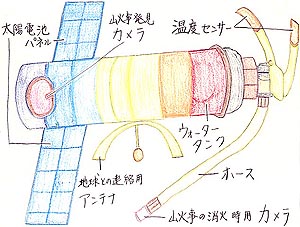 山火事発見
カメラ
太陽電池
パネル
温度センサー
ウォーター
タンク
ホース
地球との連絡用
アンテナ
山火事の消火時用カメラ